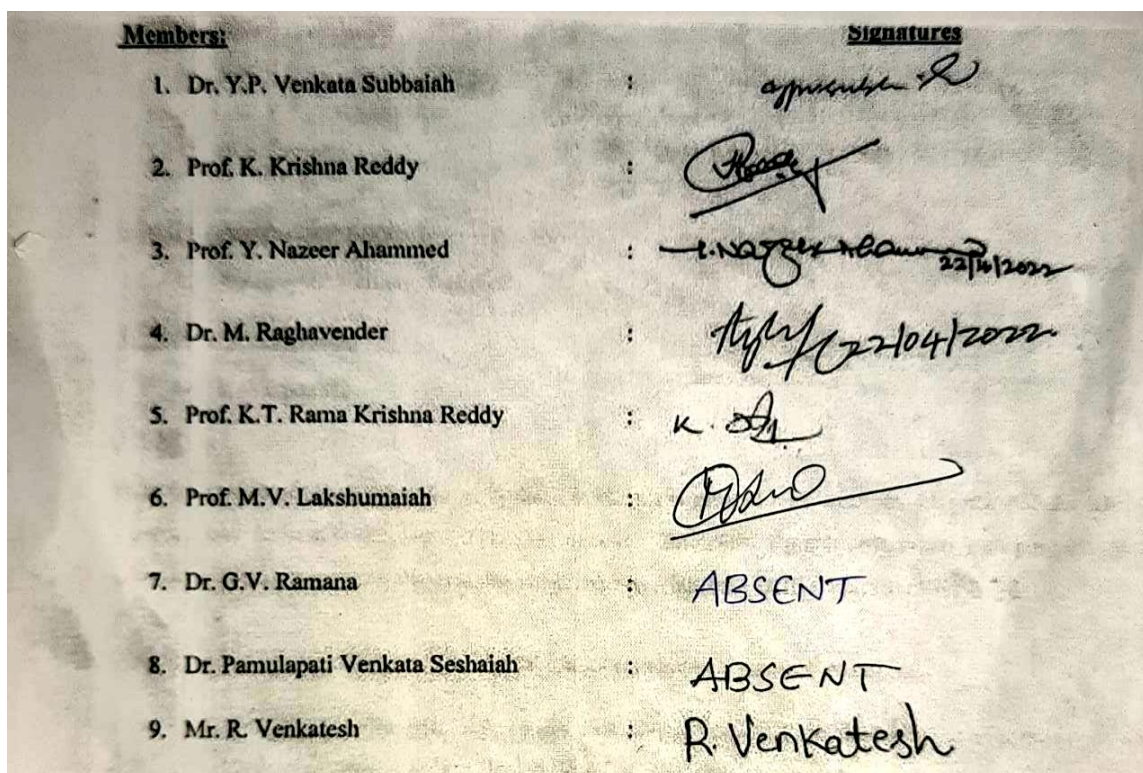 Members: Signatures
1. Dr. Y.P. Venkata Subbaiah :
2. Prof. K. Krishna Reddy :
3. Prof. Y. Nazeer Ahammed : Y. Nazeer Ahammed 22/4/2022
4. Dr. M. Raghavender : 22/04/2022
5. Prof. K.T. Rama Krishna Reddy : K.
6. Prof. M.V. Lakshumaiah :
7. Dr. G.V. Ramana : ABSENT
8. Dr. Pamulapati Venkata Seshaiah : ABSENT
9. Mr. R. Venkatesh : R. Venkatesh